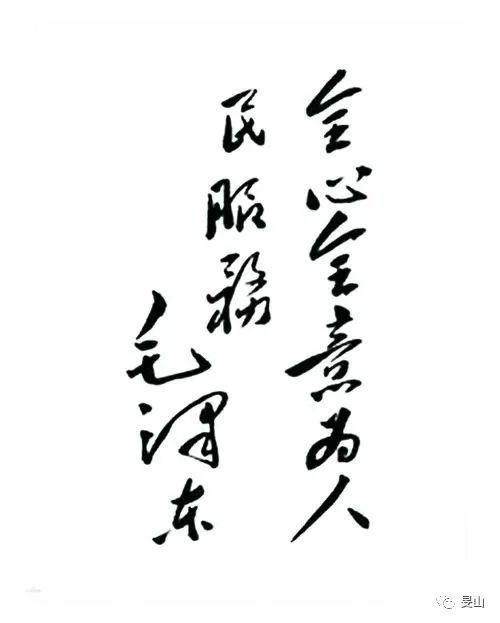 全心全意为人
民服務
毛泽东
旻山